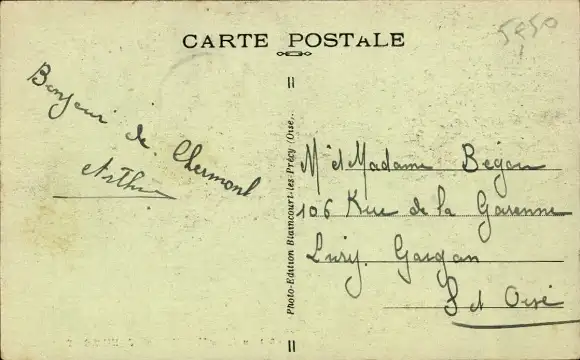 CARTE POSTALE
5950
Bonjour de Chermont
Arthur
Photo-Edition Blaincourt-les-Précy (Oise..
M et Madame Begou
106 Rue de la Garenne
Livry. Gargan
S et Oise